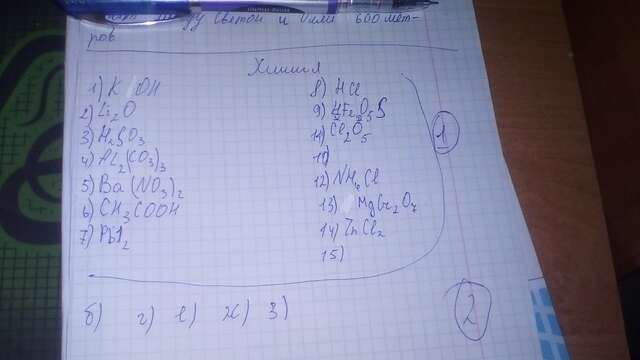 ду Светой и Олей 600 мет-
ров
Химия
1) K OH
2) Li₂O
3) H₂SO₃
4) Al₂(CO₃)₃
5) Ba(NO₃)₂
6) CH₃COOH
7) PbI₂
8) HCl
9)
11) Cl₂O₅
10)
12) NH₄Cl
13) MgCr₂O₇
14) ZnCl₂
15)
1
б) г) е) ж) з)
2